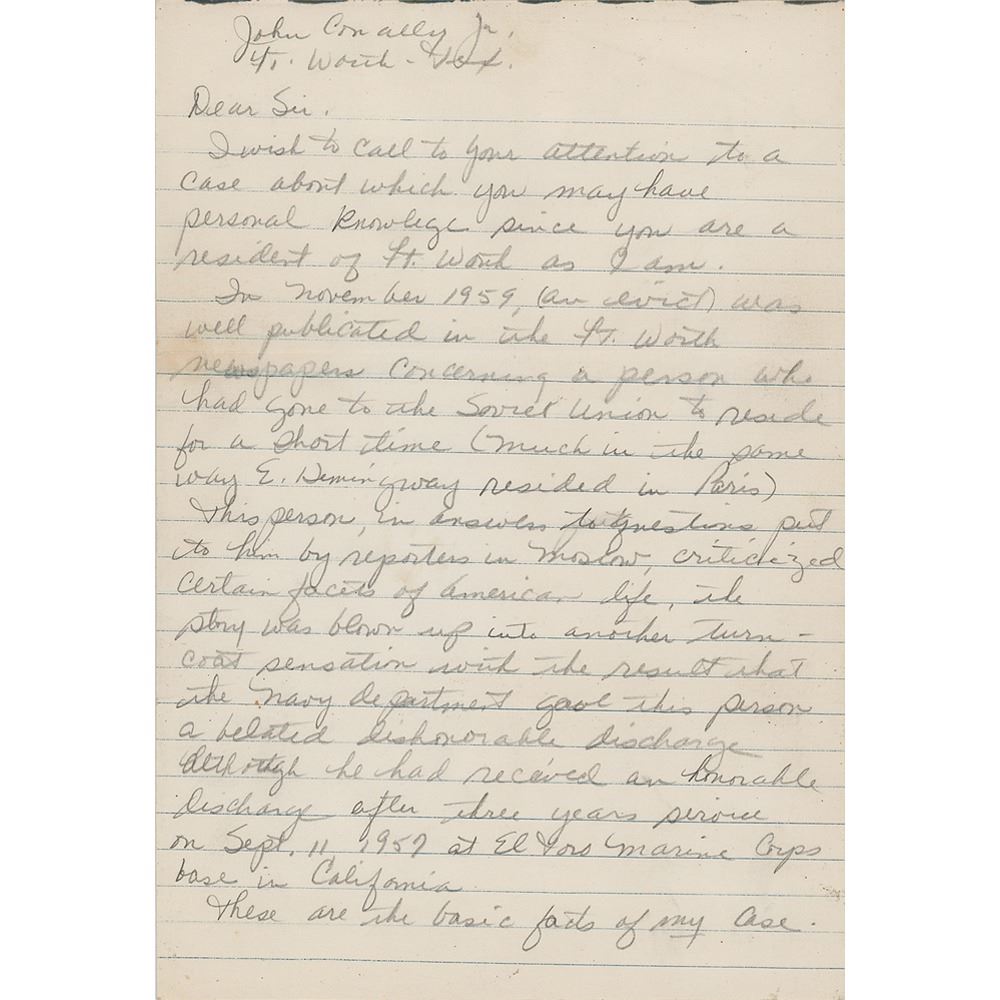 John Conally Jr.
Ft. Worth - Tex.
Dear Sir.
I wish to call to your attention to a
case about which you may have
personal knowlege since you are a
resident of Ft. Worth as I am.
In November 1959, (an evict) was
well publicated in the Ft. Worth
newspapers concerning a person who
had gone to the Soviet Union to reside
for a short time (much in the same
way E. Hemingway resided in Paris)
This person, in answers to questions put
to him by reporters in Moscow, criticized
certain facets of American life, the
story was blown up into another turn-
coat sensation with the result that
the Navy department gave this person
a belated dishonorable discharge
although he had received an honorable
discharge after three years service
on Sept. 11 1959 at El Toro Marine Corps
base in California
These are the basic facts of my case.